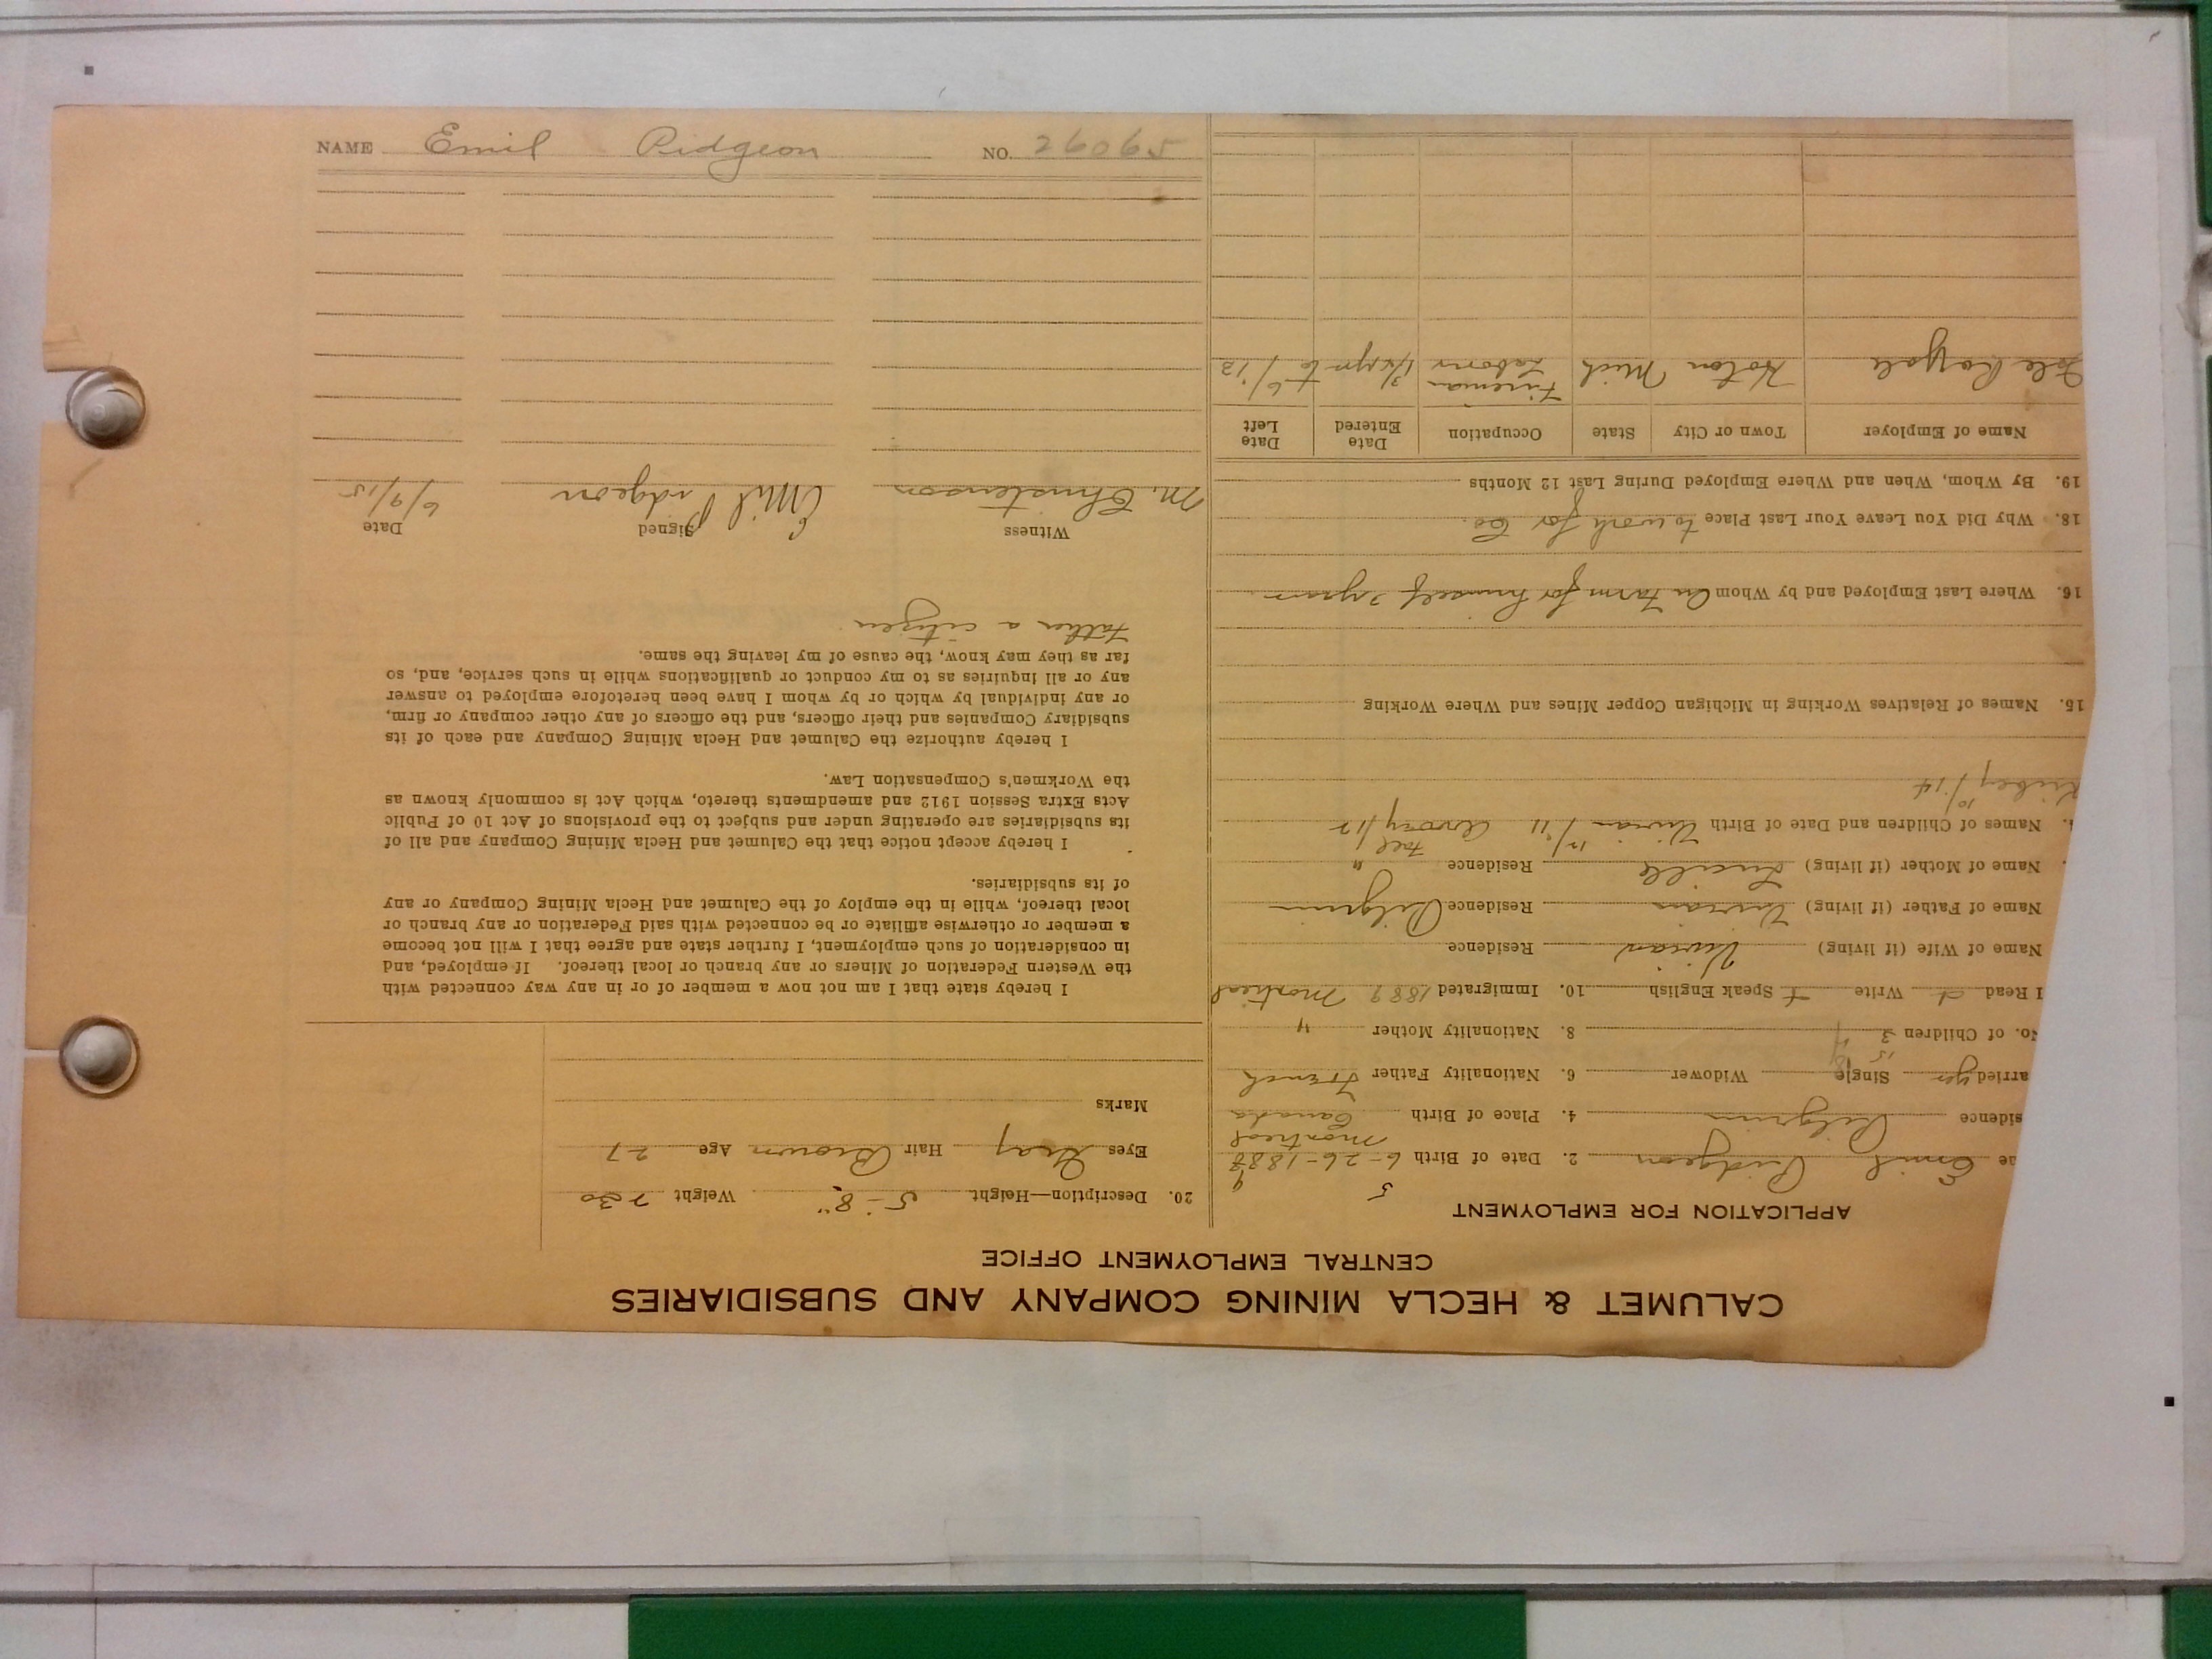 CALUMET & HECLA MINING COMPANY AND SUBSIDIARIES
CENTRAL EMPLOYMENT OFFICE
APPLICATION FOR EMPLOYMENT
ae Emil Pidgeon 2. Date of Birth 6-26-1888
sidence Pilgrim 4. Place of Birth Montreal Canada
arried yes Single Widower 6. Nationality Father French
No. of Children 3 8. Nationality Mother "
I Read Write Speak English 10. Immigrated 1889 Montreal
Name of Wife (if living) Vivian Residence
Name of Father (if living) Residence Pilgrim
Name of Mother (if living) Lucille Residence "
Names of Children and Date of Birth Vivian
10/14
15. Names of Relatives Working in Michigan Copper Mines and Where Working
16. Where Last Employed and by Whom On farm for himself 2 years
18. Why Did You Leave Your Last Place to work for Co.
19. By Whom, When and Where Employed During Last 12 Months
Name of Employer Town or City State Occupation Date Entered Date Left
Isle Royale Hoton Mich Fireman Labors
20. Description—Height 5-8" Weight
Eyes Gray Hair Brown Age 27
Marks
I hereby state that I am not now a member of or in any way connected with
the Western Federation of Miners or any branch or local thereof. If employed, and
in consideration of such employment, I further state and agree that I will not become
a member or otherwise affiliate or be connected with said Federation or any branch or
local thereof, while in the employ of the Calumet and Hecla Mining Company or any
of its subsidiaries.
I hereby accept notice that the Calumet and Hecla Mining Company and all of
its subsidiaries are operating under and subject to the provisions of Act 10 of Public
Acts Extra Session 1912 and amendments thereto, which Act is commonly known as
the Workmen's Compensation Law.
I hereby authorize the Calumet and Hecla Mining Company and each of its
subsidiary Companies and their officers, and the officers of any other company or firm,
or any individual by which or by whom I have been heretofore employed to answer
any or all inquiries as to my conduct or qualifications while in such service, and, so
far as they may know, the cause of my leaving the same.
Father a citizen
Witness Signed Date
M. Christenson Emil Pidgeon 6/9/15
NAME Emil Pidgeon NO. 26065